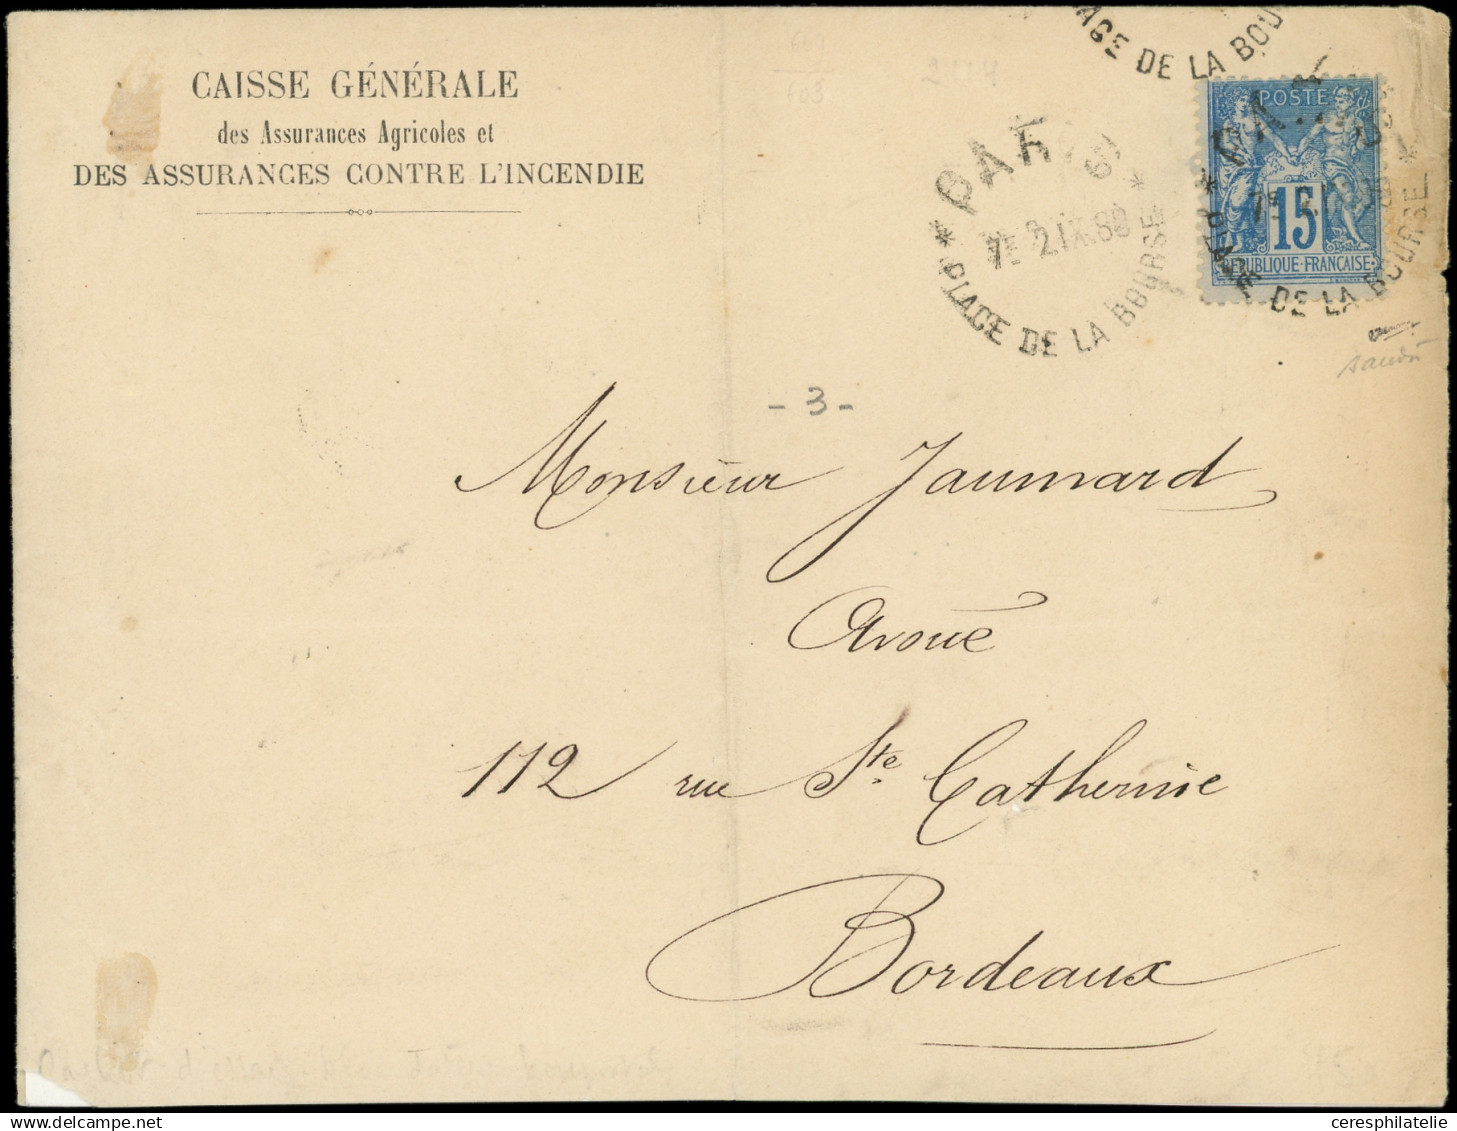 CAISSE GÉNÉRALE
des Assurances Agricoles et
DES ASSURANCES CONTRE L'INCENDIE
PLACE DE LA BOURSE
PARIS
7E 2.IX.80
PLACE DE LA BOURSE
POSTE
15
REPUBLIQUE·FRANÇAISE
PLACE DE LA BOURSE
- 3 -
Monsieur Jaumard
Avoué
112 rue Ste Catherine
Bordeaux
ceresphilatelie.com